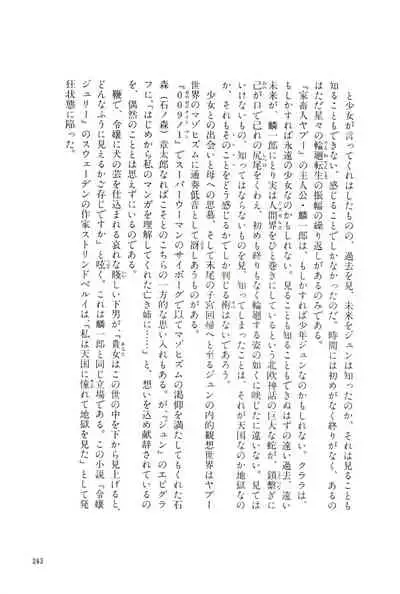 と少女が言ってくれはしたものの、過去を見、未来をジュンは知ったのか、それは見ることも
知ることもできない、感じることでしかなかったのだ。時間には初めがなく終りがなく、あるの
はただ星々の輪廻転生の振幅の繰り返しがあるのみである。
「家畜人ヤプー」の主人公・麟一郎は、もしかすれば少年ジュンなのかもしれない、クララは、
もしかすれば永遠の少女なのかもしれない。見ることも知ることもできぬはずの遠い過去、遠い
未来が、麟一郎にとり実は人間界をひと巻きにしているという北欧神話の巨大な蛇が、鎖繫ぎに
己が口で己れの尻尾をくわえ、初めも終りもなく輪廻する姿の如くに映じたに違いない。見ては
いけないもの、知ってはならないものを見、知ってしまったことは、それが天国なのか地獄なの
か、それもそのことをどう感じるかでしか判じる術はないであろう。
少女との出会いと母への思慕、そして末尾の子宮回帰へと至るジュンの内的観想世界はヤプー
世界のマゾヒズムに通奏低音として谺しあうものがある。
『009ノ1』でスーパーウーマンのサイボーグで以てマゾヒズムの渇仰を満たしてもくれた石
森（石ノ森）章太郎なればこそとのこちらの一方的な思い入れもある。が「ジュン」のエピグラ
フに、「はじめから私のマンガを理解してくれた亡き姉に……」と、想いを込め献辞されているの
を、偶然のこととは思えずにいるのである。
鞭で、令嬢に犬の芸を仕込まれる哀れな賤しい下男が、「貴女はこの世の中を下から見上げると、
どんなふうに見えるかご存じですか」と呟く。これは麟一郎と同じ立場である。この小説『令嬢
ジュリー』のスウェーデンの作家ストリンドベルイは、「私は天国に憧れて地獄を見た」として発
狂状態に陥った。
243